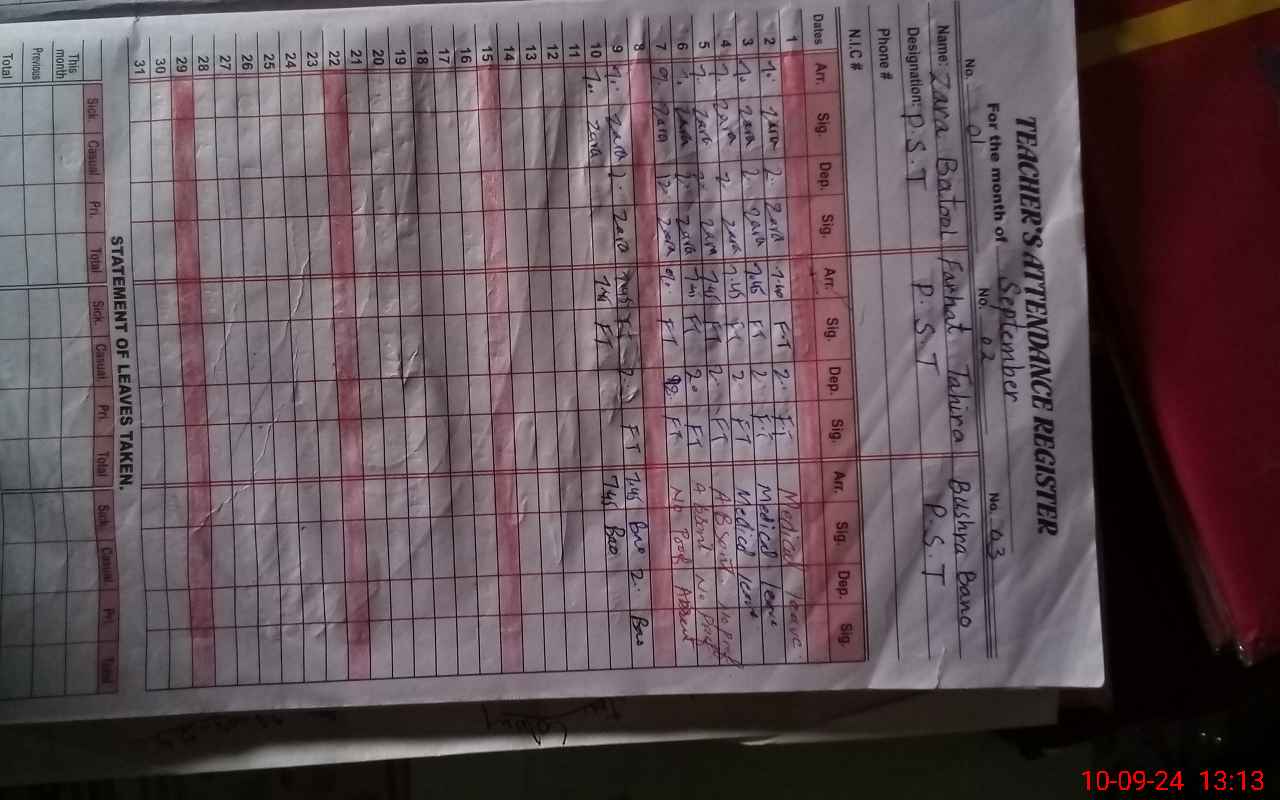 TEACHER'S ATTENDANCE REGISTER
For the month of September
No. 01 No. 02 No. 03
Name: Zara Batool Farhat Tahira Bushra Bano
Designation: P.S.T P.S.T P.S.T
Phone #
N.I.C #
Dates Arr. Sig. Dep. Sig. Arr. Sig. Dep. Sig. Arr. Sig. Dep. Sig.
1 Medical leave
2 zara 2. zara FT 2. FT Medical leave
3 zara 2. zara 7.45 FT 2. FT Medical leave
4 zara 2. zara 7.45 FT 2 FT Absent No proof
5 zara 2. zara 7.45 FT 2. FT Absent No Proof
6 zara 2. zara 7.45 FT FT No Proof Absent
7 zara 12. zara FT 12. FT
8
9 zara 2. zara 7.45 FT 2. FT 7.45 Bao 2. Bao
10 zara 7.45 FT 7.45 Bao
11
12
13
14
15
16
17
18
19
20
21
22
23
24
25
26
27
28
29
30
31
STATEMENT OF LEAVES TAKEN.
Sick. Casual Pri. Total Sick. Casual. Pri. Total Sick. Casual Pri. Total
This month
Previous
Total
10-09-24 13:13